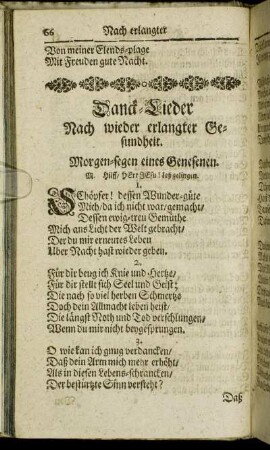 66 Nach erlangter
Von meiner Elends-plage
Mit Freuden gute Nacht.
Danck-Lieder
Nach wieder erlangter Ge-
sundheit.
Morgen-segen eines Genesenen.
M. Hilff / HErr JEsu! laß gelingen.
1.
Schöpfer! dessen Wunder-güte
Mich/da ich nicht war/gemacht/
Dessen ewig-treu Gemüthe
Mich ans Licht der Welt gebracht/
Der du mir erneutes Leben
Uber Nacht hast wieder geben.
2.
Für dir beug ich Knie und Hertze/
Für dir stellt sich Seel und Geist;
Die nach so viel herben Schmertze
Doch dein Allmacht leben heist/
Die längst Noth und Tod verschlungen/
Wenn du mir nicht beygesprungen.
3.
O wie kan ich gnug verdancken/
Daß dein Arm mich mehr erhöht/
Als in diesen Lebens-schrancken/
Der bestürtzte Sinn versteht?
Daß